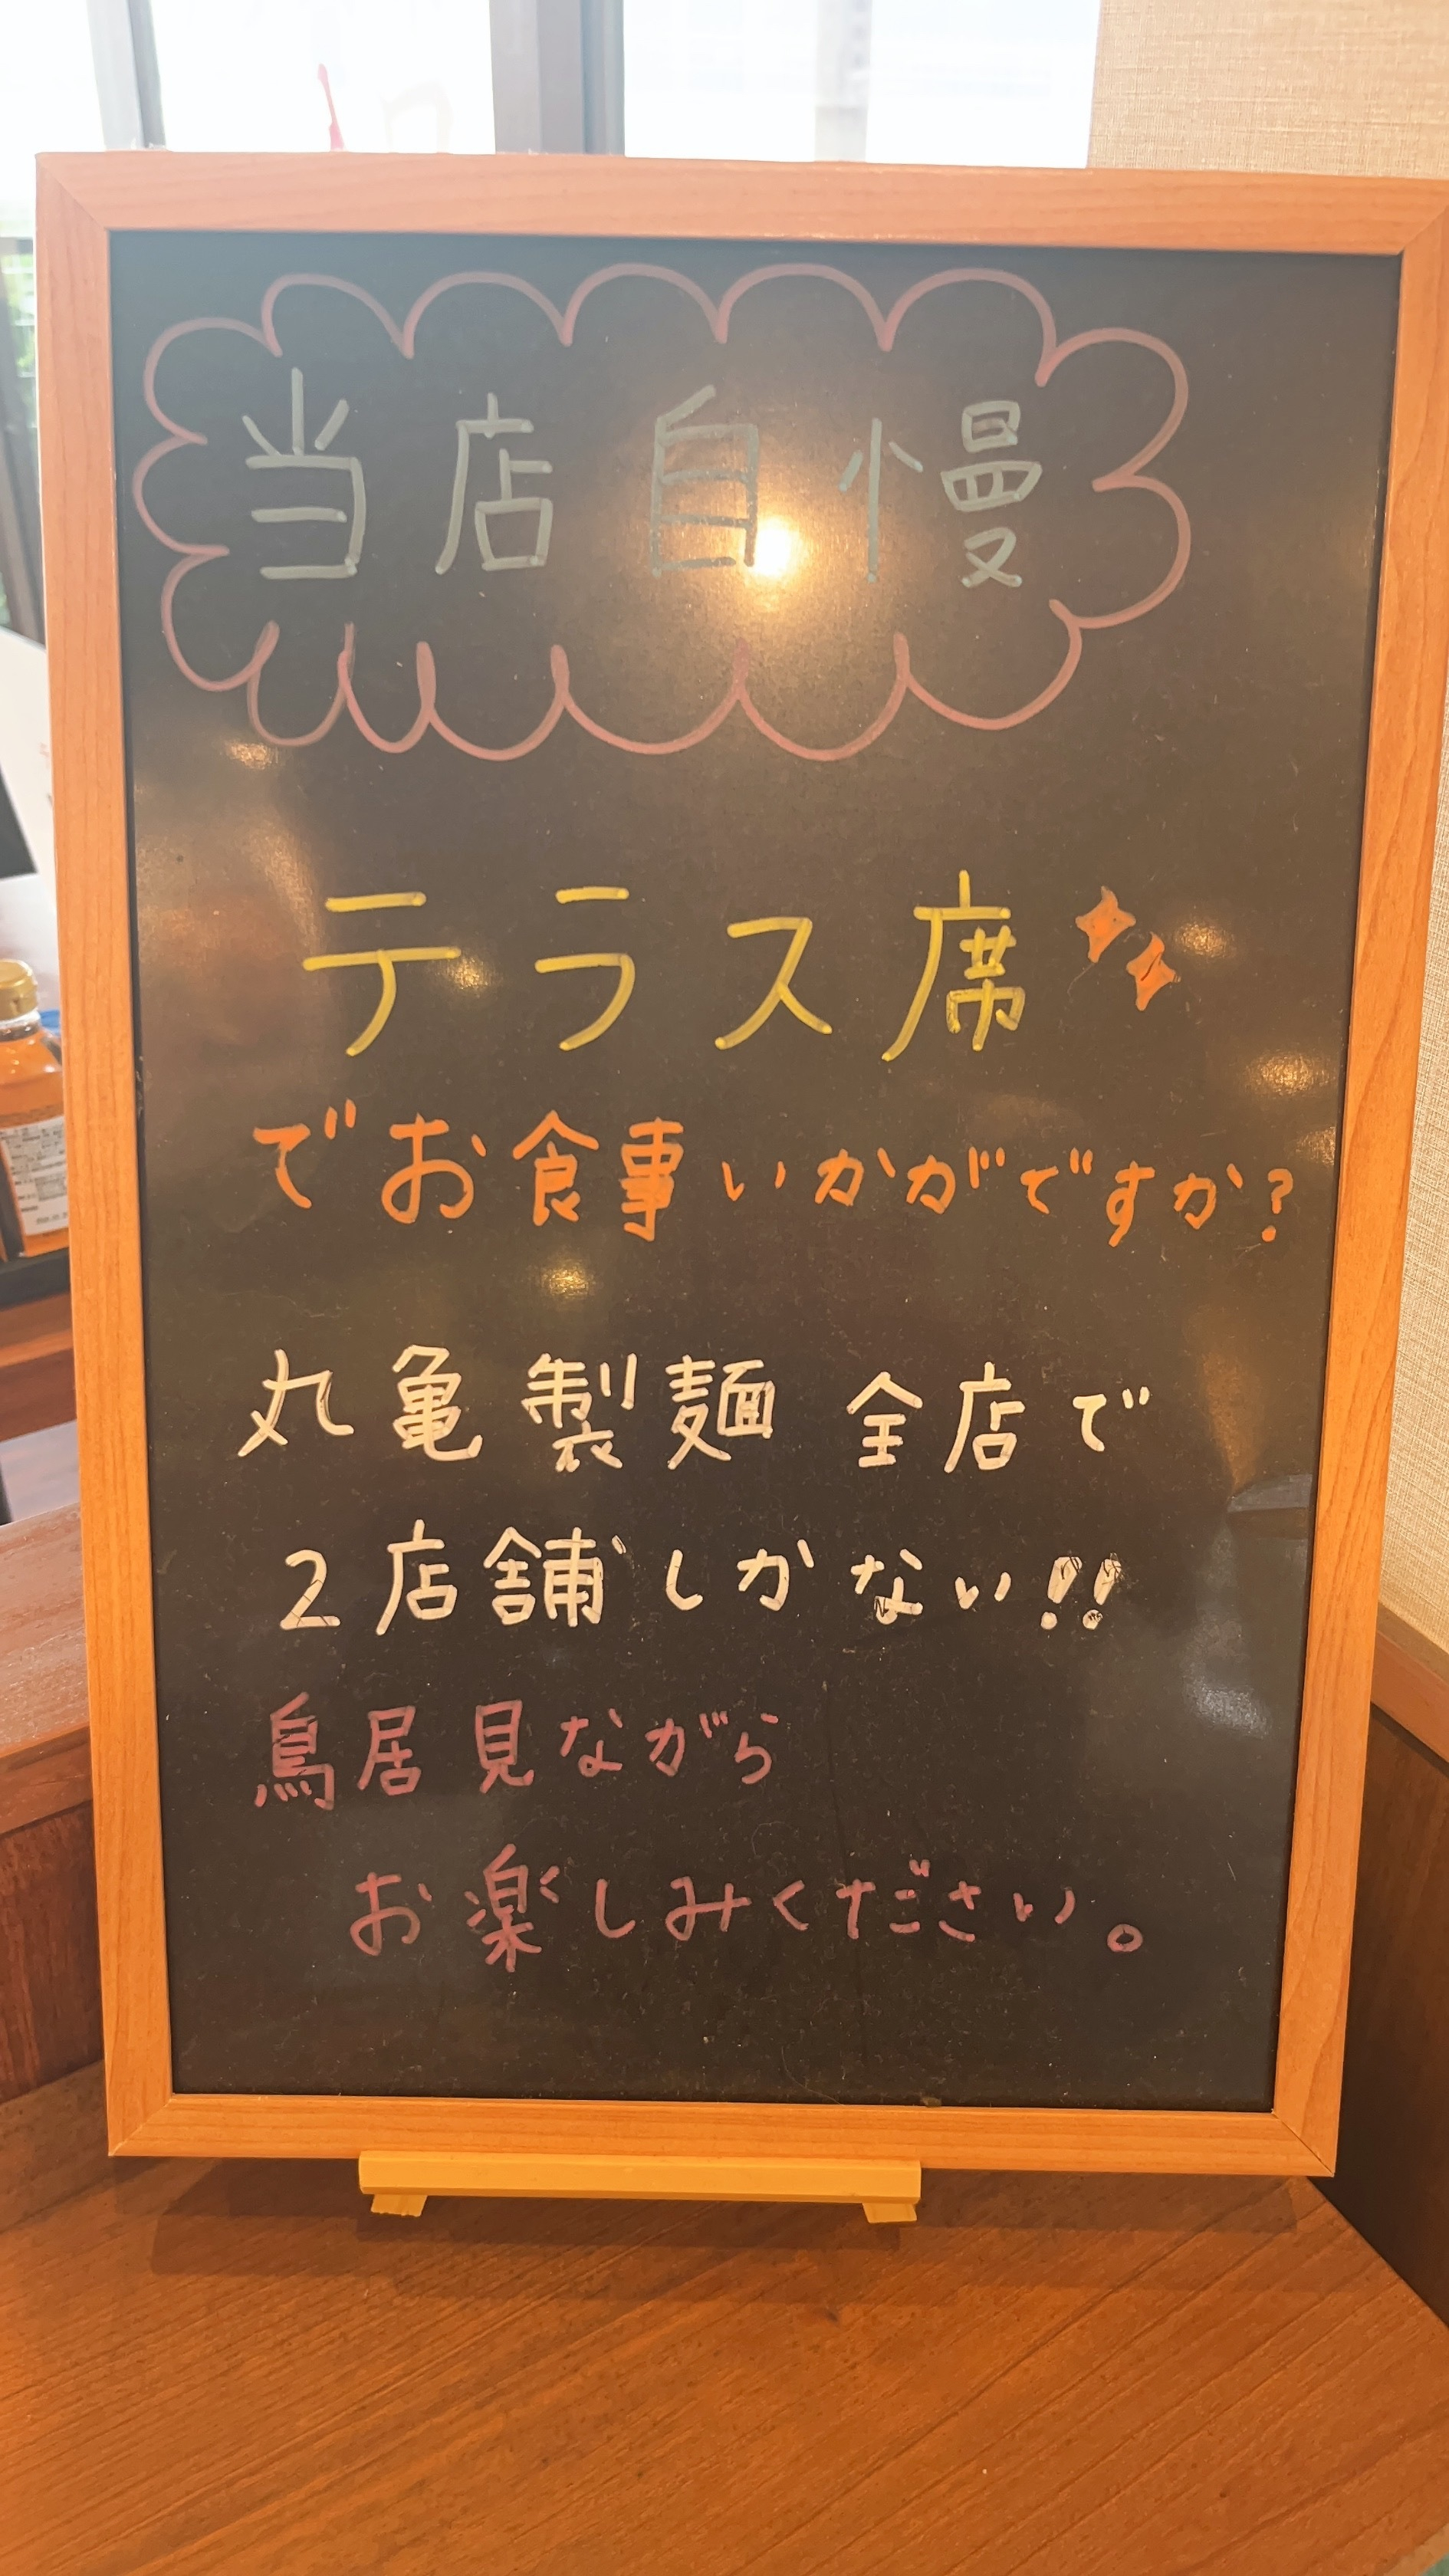 当店自慢
テラス席
でお食事いかがですか?
丸亀製麺 全店で
2店舗しかない!!
鳥居見ながら
お楽しみください。